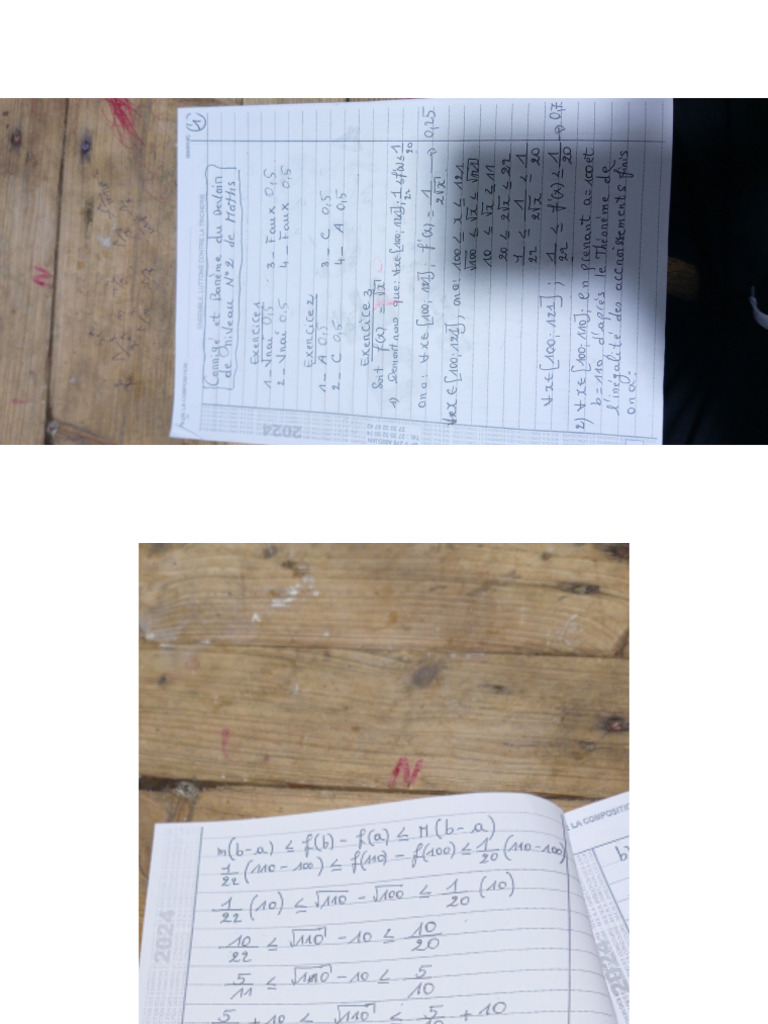 ENSEMBLE, LUTTONS CONTRE LA TRICHERIE
(1)
Corrigé et Barème du devoir
de niveau N°2 de Maths
Exercice 1
1 - Vrai 0,5 3 - Faux 0,5
2 - Vrai 0,5 4 - Faux 0,5
Exercice 2
1 - A 0,5 3 - C 0,5
2 - C 0,5 4 - A 0,5
Exercice 3
Soit f(x) = √x
1) Démontrons que: ∀x∈[100; 121]; 1/22 ≤ f'(x) ≤ 1/20
on a: ∀x∈[100; 121]; f'(x) = 1/(2√x) → 0,25
∀x∈[100; 121], on a: 100 ≤ x ≤ 121
√100 ≤ √x ≤ √121
10 ≤ √x ≤ 11
20 ≤ 2√x ≤ 22
1/22 ≤ 1/(2√x) ≤ 1/20
∀x∈[100; 121]; 1/22 ≤ f'(x) ≤ 1/20 → 0,7
2) ∀x∈[100; 110]; en prenant a=100 et
b=110 d'après le Théorème de
l'inégalité des accroissements finis
on a:
2024
N
N
LA COMPOSITIO
m(b-a) ≤ f(b) - f(a) ≤ M(b-a)
1/22 (110-100) ≤ f(110) - f(100) ≤ 1/20 (110-100)
1/22 (10) ≤ √110 - √100 ≤ 1/20 (10)
10/22 ≤ √110 - 10 ≤ 10/20
5/11 ≤ √110 - 10 ≤ 5/10
5 + 10 ≤ √110 ≤ 5/10 + 10
2024
2024